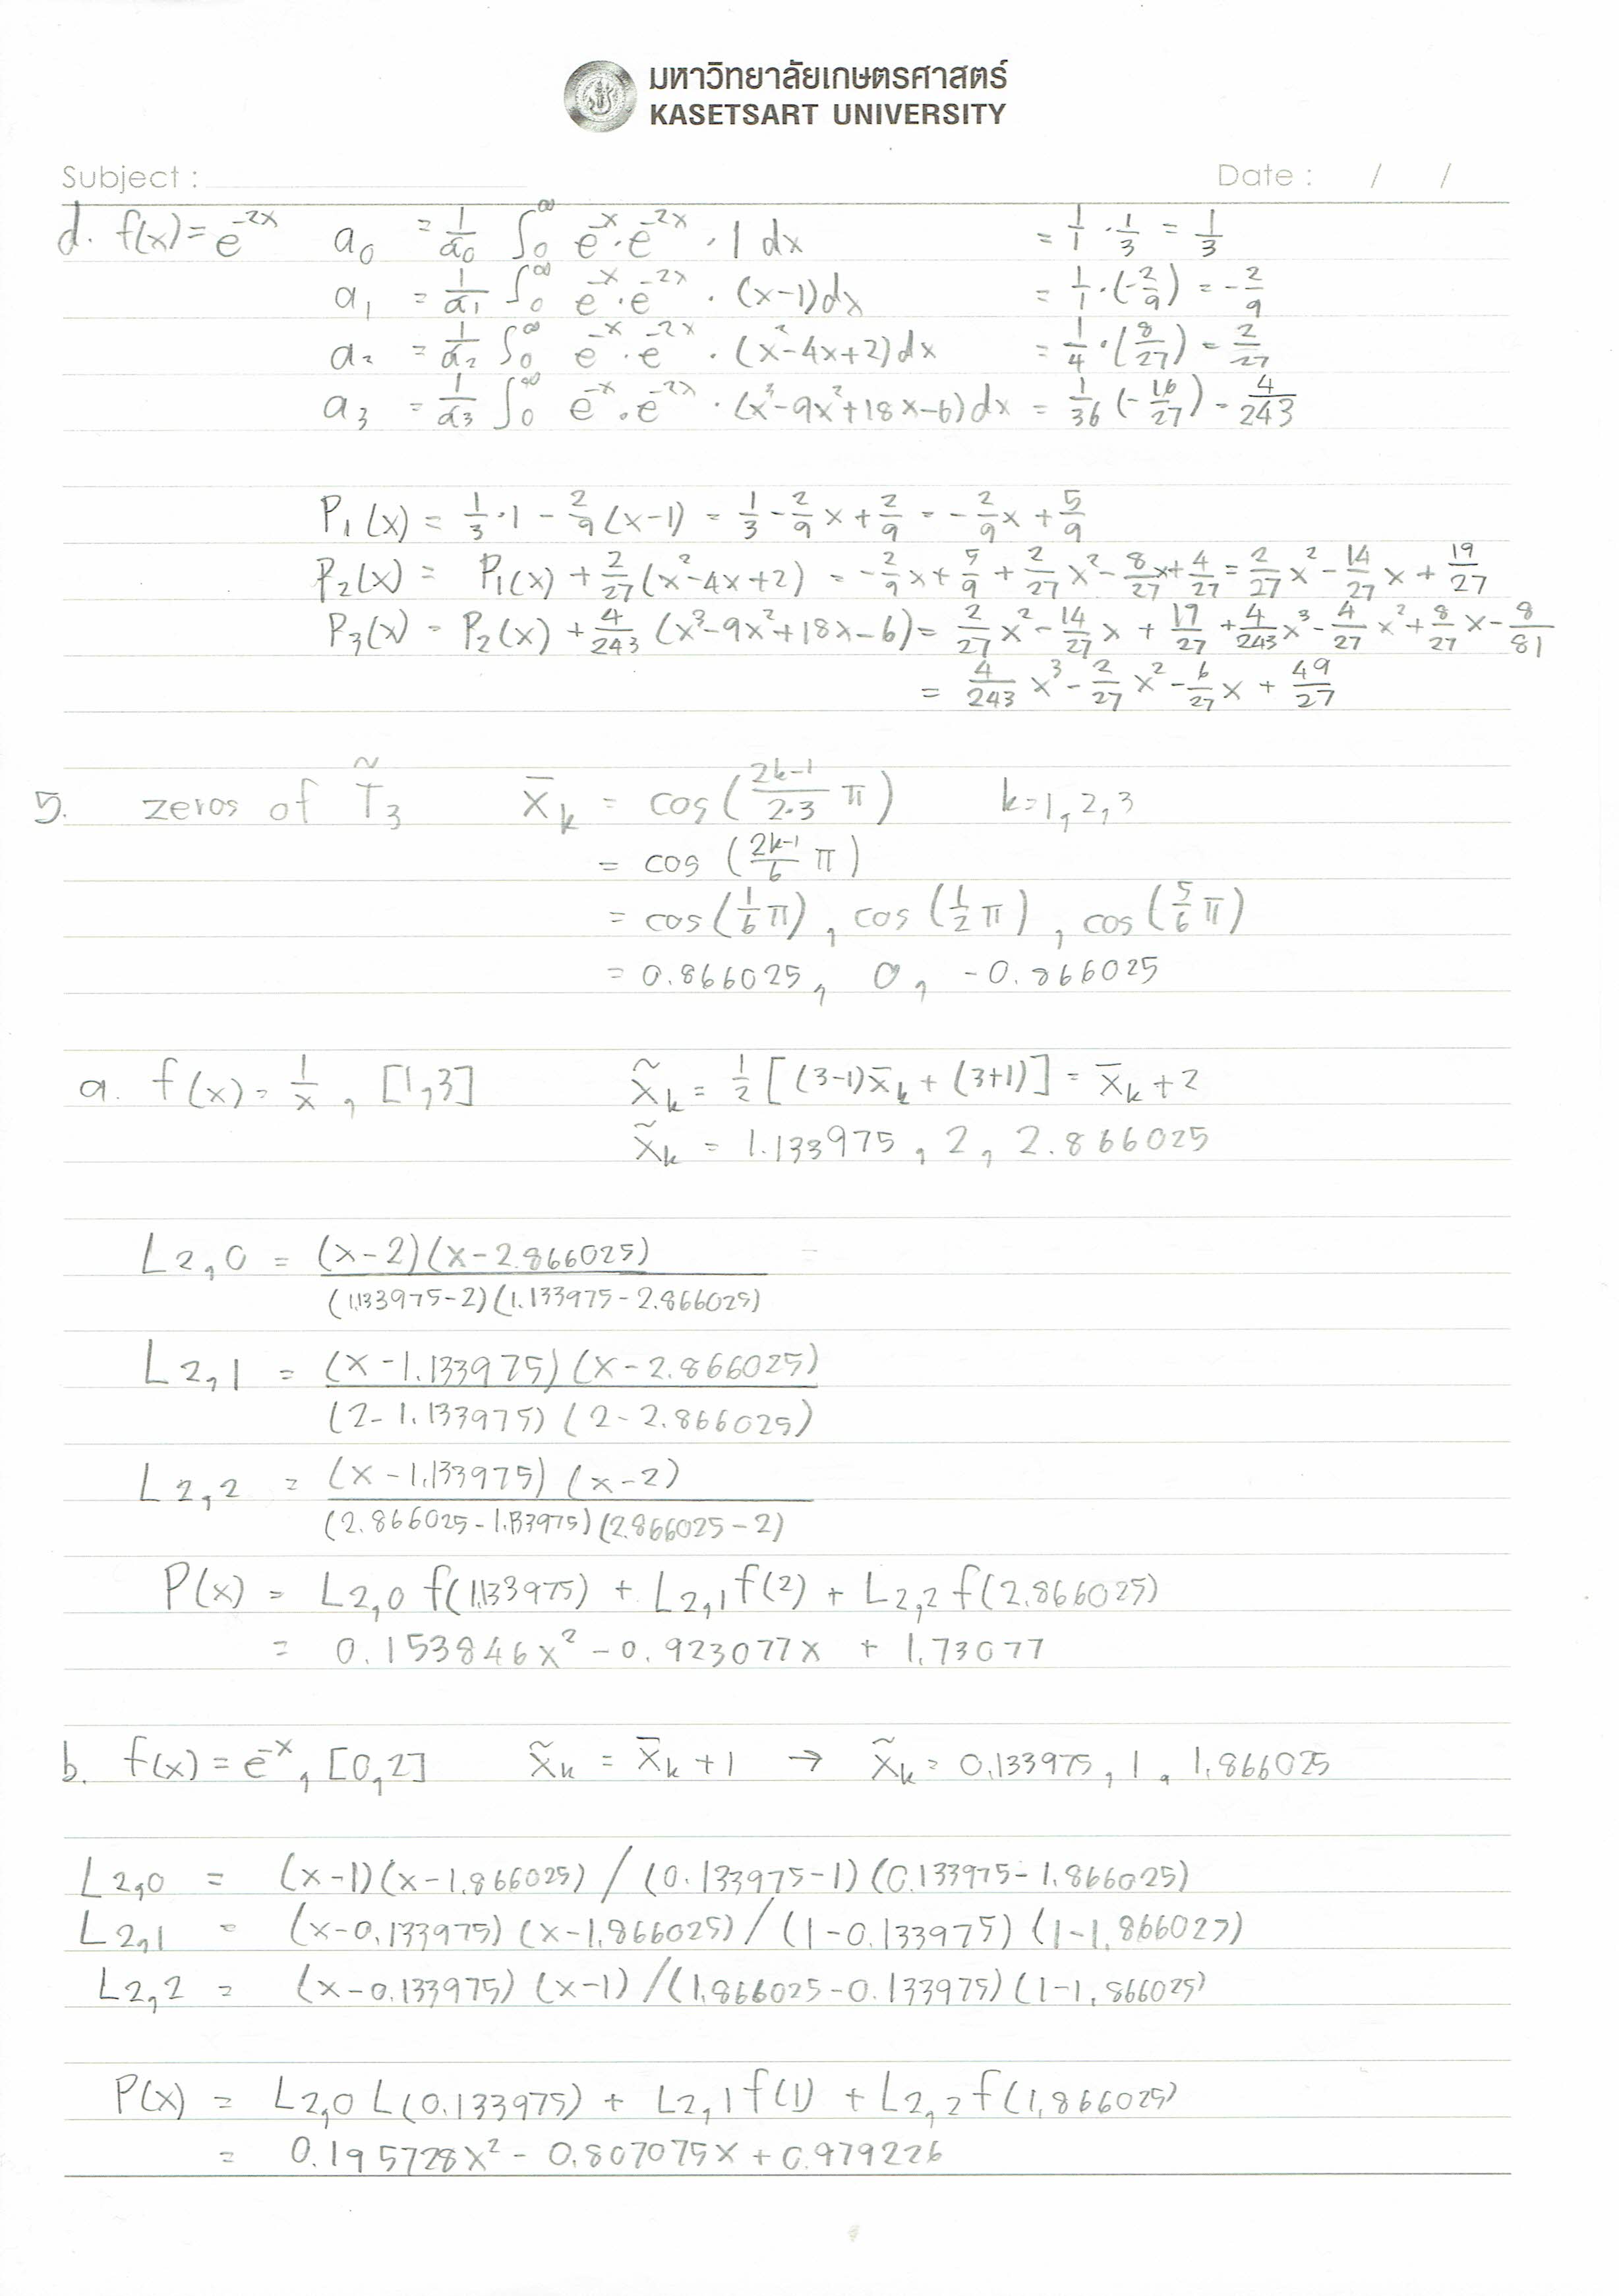 มหาวิทยาลัยเกษตรศาสตร์
KASETSART UNIVERSITY
Subject : Date : / /
d. f(x) = e^{-2x} a_0 = \frac{1}{α_0} ∫_0^∞ e^{-x} · e^{-2x} · 1 dx = \frac{1}{1} · \frac{1}{3} = \frac{1}{3}
a_1 = \frac{1}{α_1} ∫_0^∞ e^{-x} · e^{-2x} · (x-1)dx = \frac{1}{1} · (-\frac{2}{9}) = -\frac{2}{9}
a_2 = \frac{1}{α_2} ∫_0^∞ e^{-x} · e^{-2x} · (x^2-4x+2)dx = \frac{1}{4} · (\frac{8}{27}) = \frac{2}{27}
a_3 = \frac{1}{α_3} ∫_0^∞ e^{-x} · e^{-2x} · (x^3-9x^2+18x-6)dx = \frac{1}{36} (-\frac{16}{27}) = \frac{4}{243}
P_1(x) = \frac{1}{3}·1 - \frac{2}{9}(x-1) = \frac{1}{3} - \frac{2}{9}x + \frac{2}{9} = -\frac{2}{9}x + \frac{5}{9}
P_2(x) = P_1(x) + \frac{2}{27}(x^2-4x+2) = -\frac{2}{9}x + \frac{5}{9} + \frac{2}{27}x^2 - \frac{8}{27}x + \frac{4}{27} = \frac{2}{27}x^2 - \frac{14}{27}x + \frac{19}{27}
P_3(x) = P_2(x) + \frac{4}{243}(x^3-9x^2+18x-6) = \frac{2}{27}x^2 - \frac{14}{27}x + \frac{17}{27} + \frac{4}{243}x^3 - \frac{4}{27}x^2 + \frac{8}{27}x - \frac{8}{81}
= \frac{4}{243}x^3 - \frac{2}{27}x^2 - \frac{6}{27}x + \frac{49}{27}
5. zeros of \tilde{T}_3 \bar{x}_k = cos(\frac{2k-1}{2·3} π) k=1,2,3
= cos (\frac{2k-1}{6} π)
= cos(\frac{1}{6}π), cos(\frac{1}{2}π), cos(\frac{5}{6}π)
= 0.866025, 0, -0.866025
a. f(x) = \frac{1}{x}, [1,3] \tilde{x}_k = \frac{1}{2}[(3-1)\bar{x}_k + (3+1)] = \bar{x}_k + 2
\tilde{x}_k = 1.133975, 2, 2.866025
L_{2,0} = \frac{(x-2)(x-2.866025)}{(1.133975-2)(1.133975-2.866025)}
L_{2,1} = \frac{(x-1.133975)(x-2.866025)}{(2-1.133975)(2-2.866025)}
L_{2,2} = \frac{(x-1.133975)(x-2)}{(2.866025-1.133975)(2.866025-2)}
P(x) = L_{2,0} f(1.133975) + L_{2,1} f(2) + L_{2,2} f(2.866025)
= 0.153846x^2 - 0.923077x + 1.73077
b. f(x) = e^{-x}, [0,2] \tilde{x}_k = \bar{x}_k + 1 → \tilde{x}_k = 0.133975, 1, 1.866025
L_{2,0} = (x-1)(x-1.866025) / (0.133975-1)(0.133975-1.866025)
L_{2,1} = (x-0.133975)(x-1.866025) / (1-0.133975)(1-1.866025)
L_{2,2} = (x-0.133975)(x-1) / (1.866025-0.133975)(1-1.866025)
P(x) = L_{2,0} L(0.133975) + L_{2,1} f(1) + L_{2,2} f(1.866025)
= 0.195728x^2 - 0.807075x + 0.979226